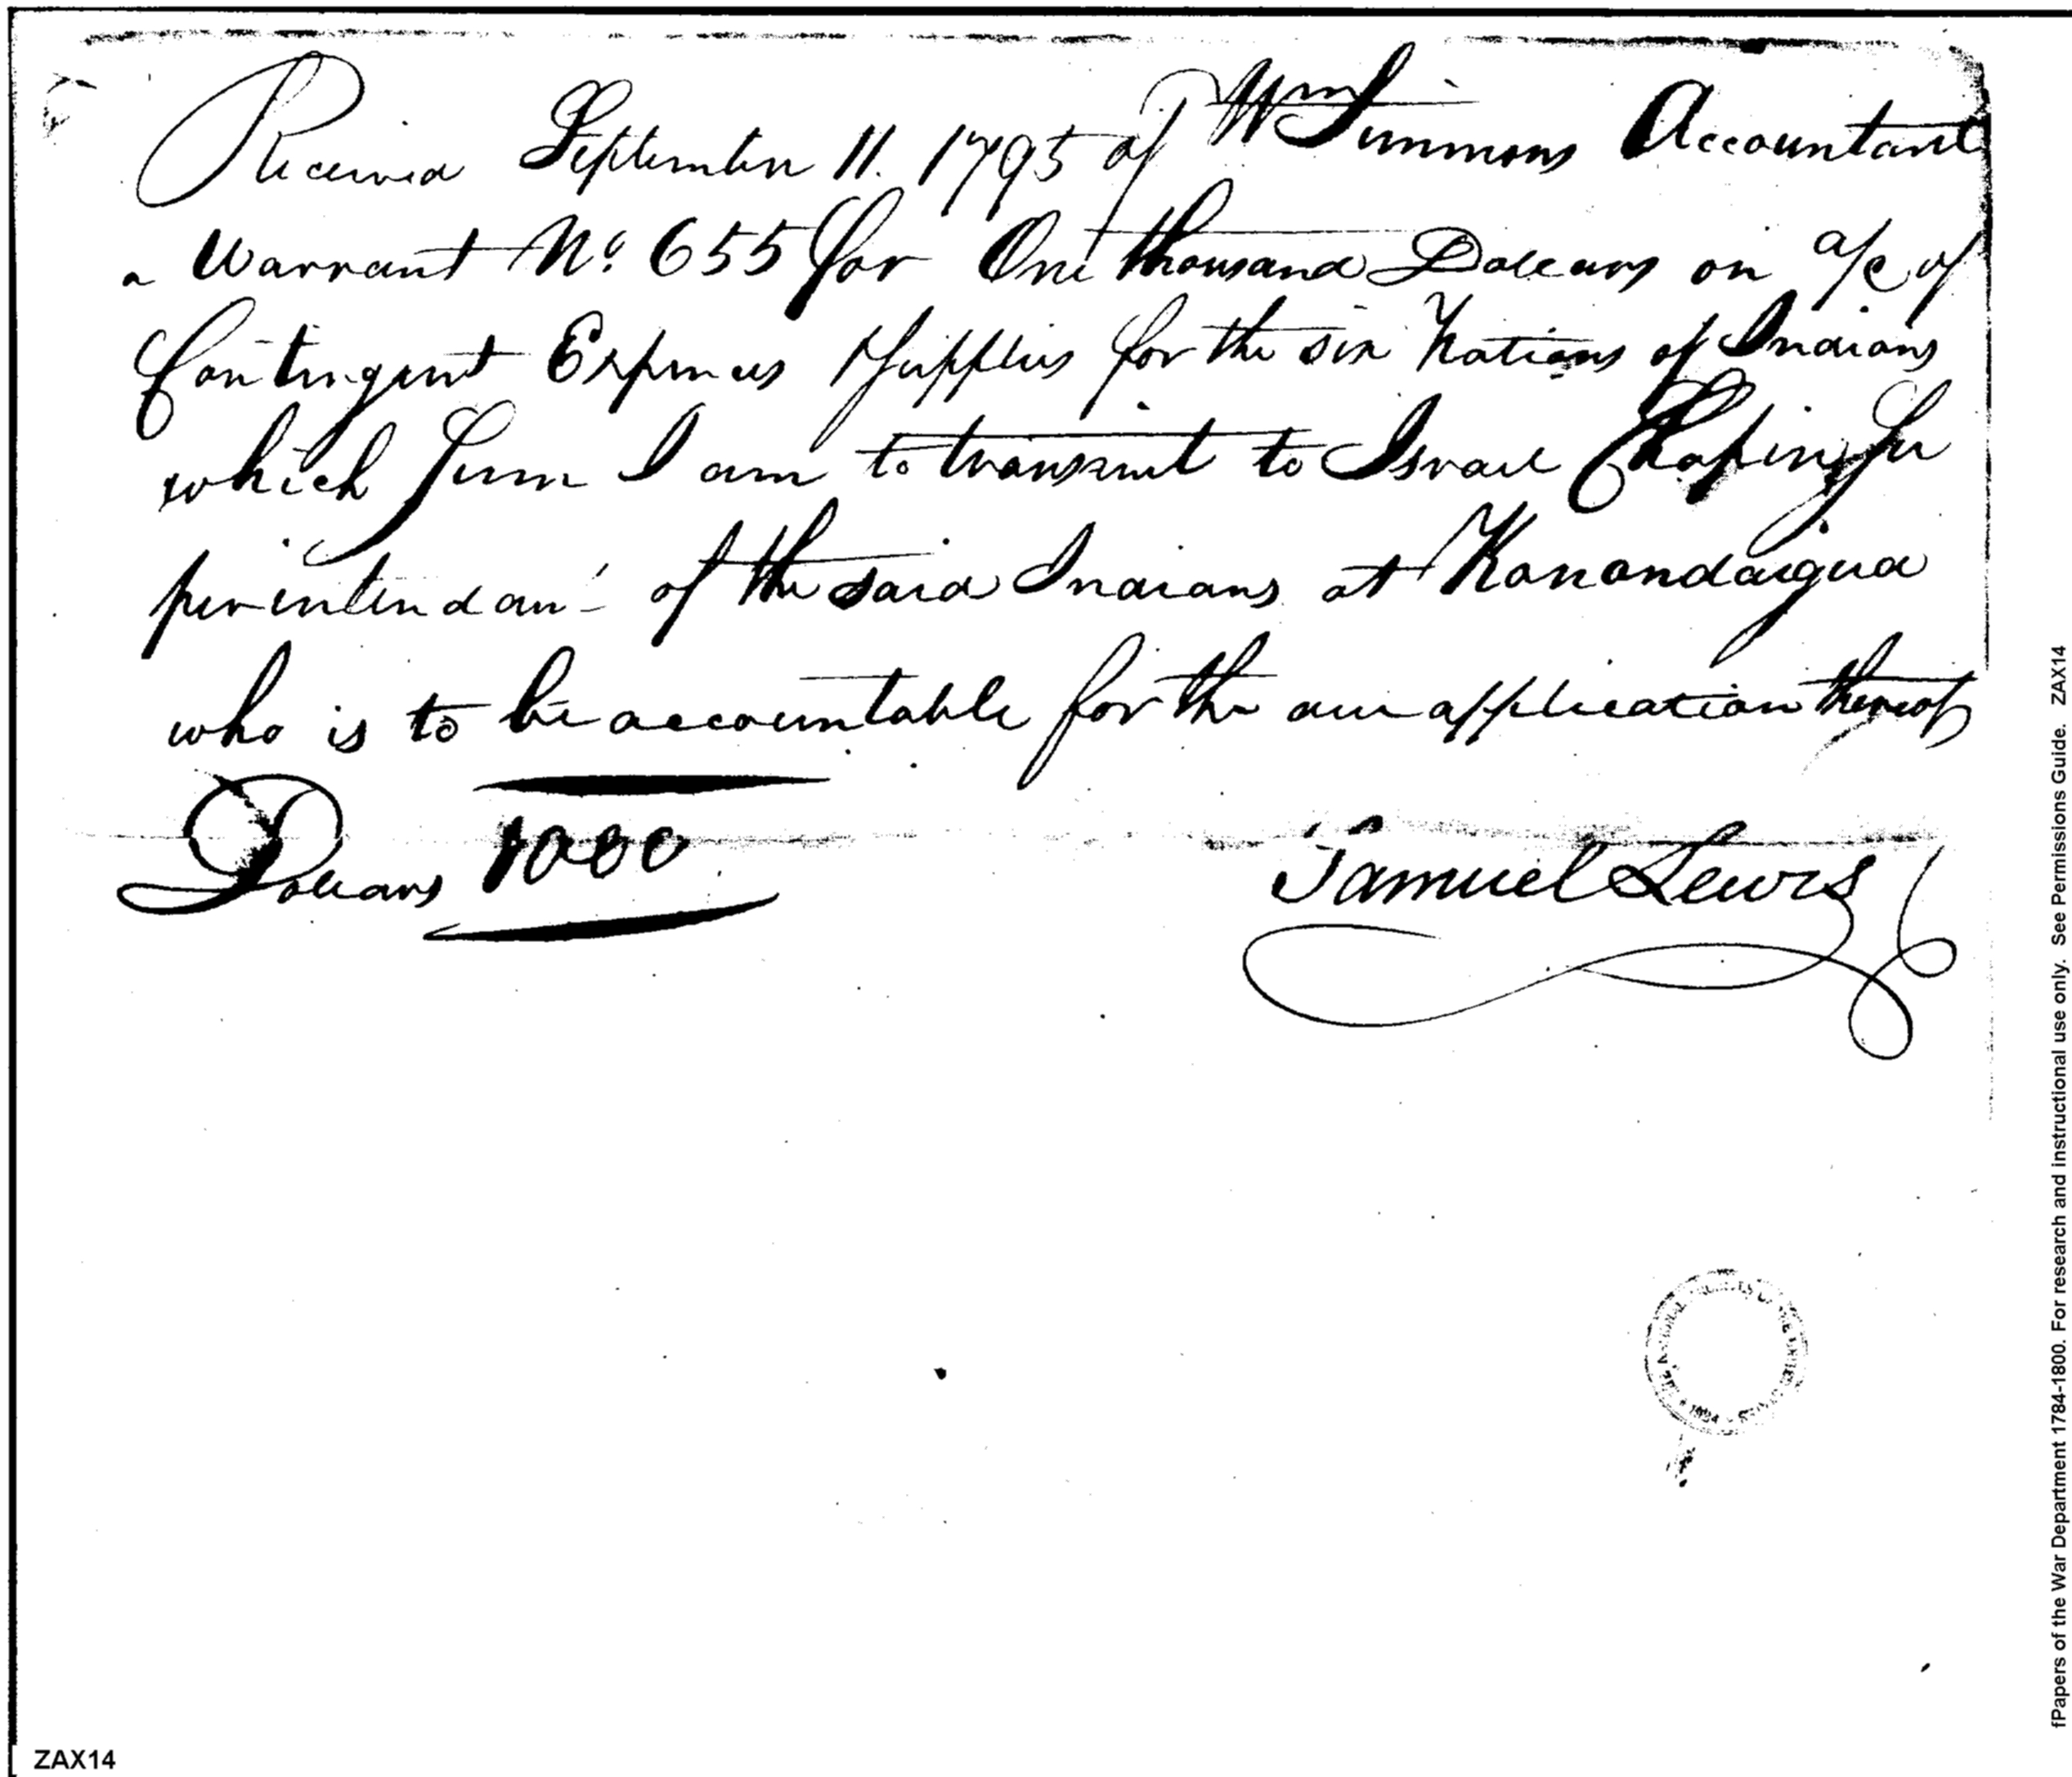 Received September 11. 1795 of Wm Simmons Accountant
a Warrant No. 655 for One thousand Dollars on a/c of
Contingent Expences Supplies for the six Nations of Indians
which Sum I am to transmit to Israel Chapin Su
perintendant of the said Indians at Kanandaigua
who is to be accountable for the due application thereof
Dollars 1000
Samuel Lewis
fPapers of the War Department 1784-1800. For research and instructional use only. See Permissions Guide. ZAX14
ZAX14